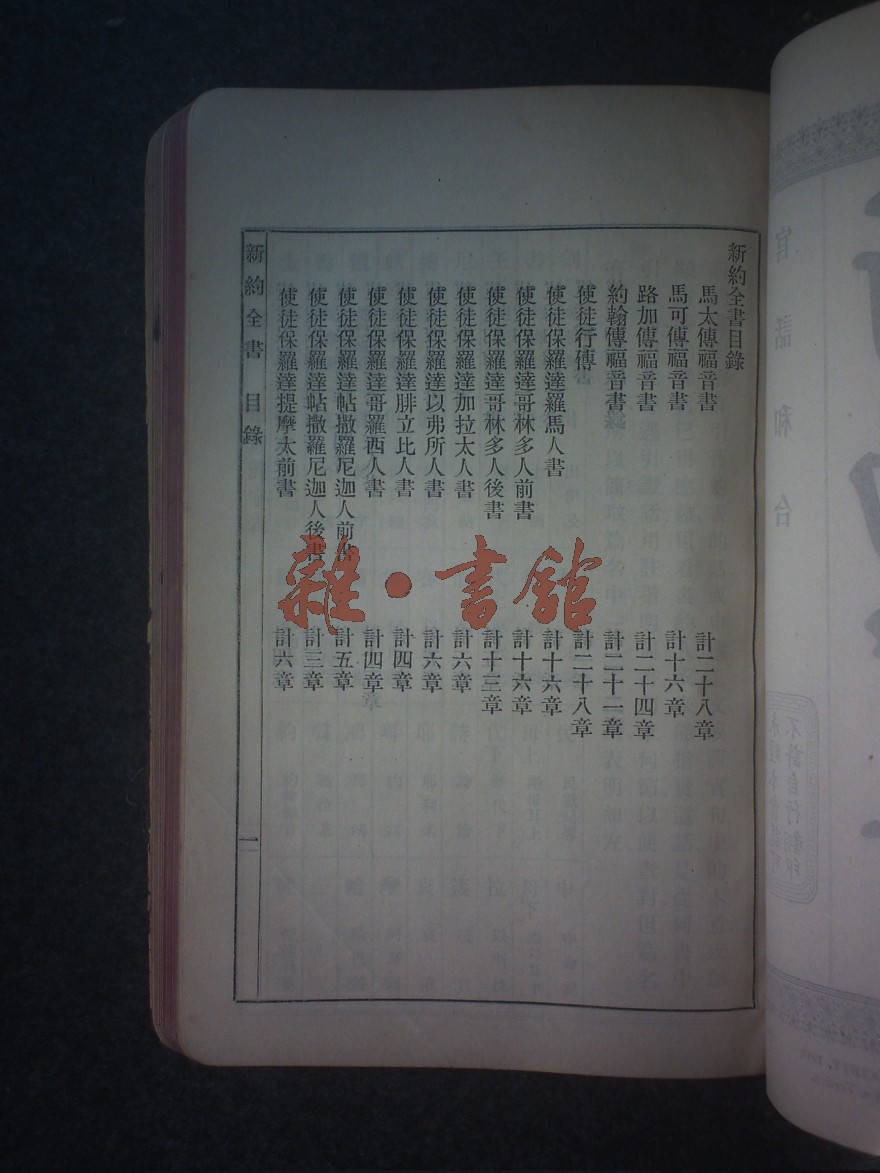 新約全書目錄
馬太傳福音書 計二十八章
馬可傳福音書 計十六章
路加傳福音書 計二十四章
約翰傳福音書 計二十一章
使徒行傳 計二十八章
使徒保羅達羅馬人書 計十六章
使徒保羅達哥林多人前書 計十六章
使徒保羅達哥林多人後書 計十三章
使徒保羅達加拉太人書 計六章
使徒保羅達以弗所人書 計六章
使徒保羅達腓立比人書 計四章
使徒保羅達哥羅西人書 計四章
使徒保羅達帖撒羅尼迦人前書 計五章
使徒保羅達帖撒羅尼迦人後書 計三章
使徒保羅達提摩太前書 計六章
新約全書 目錄 一
雜·書館
官話和合
不許自行翻印